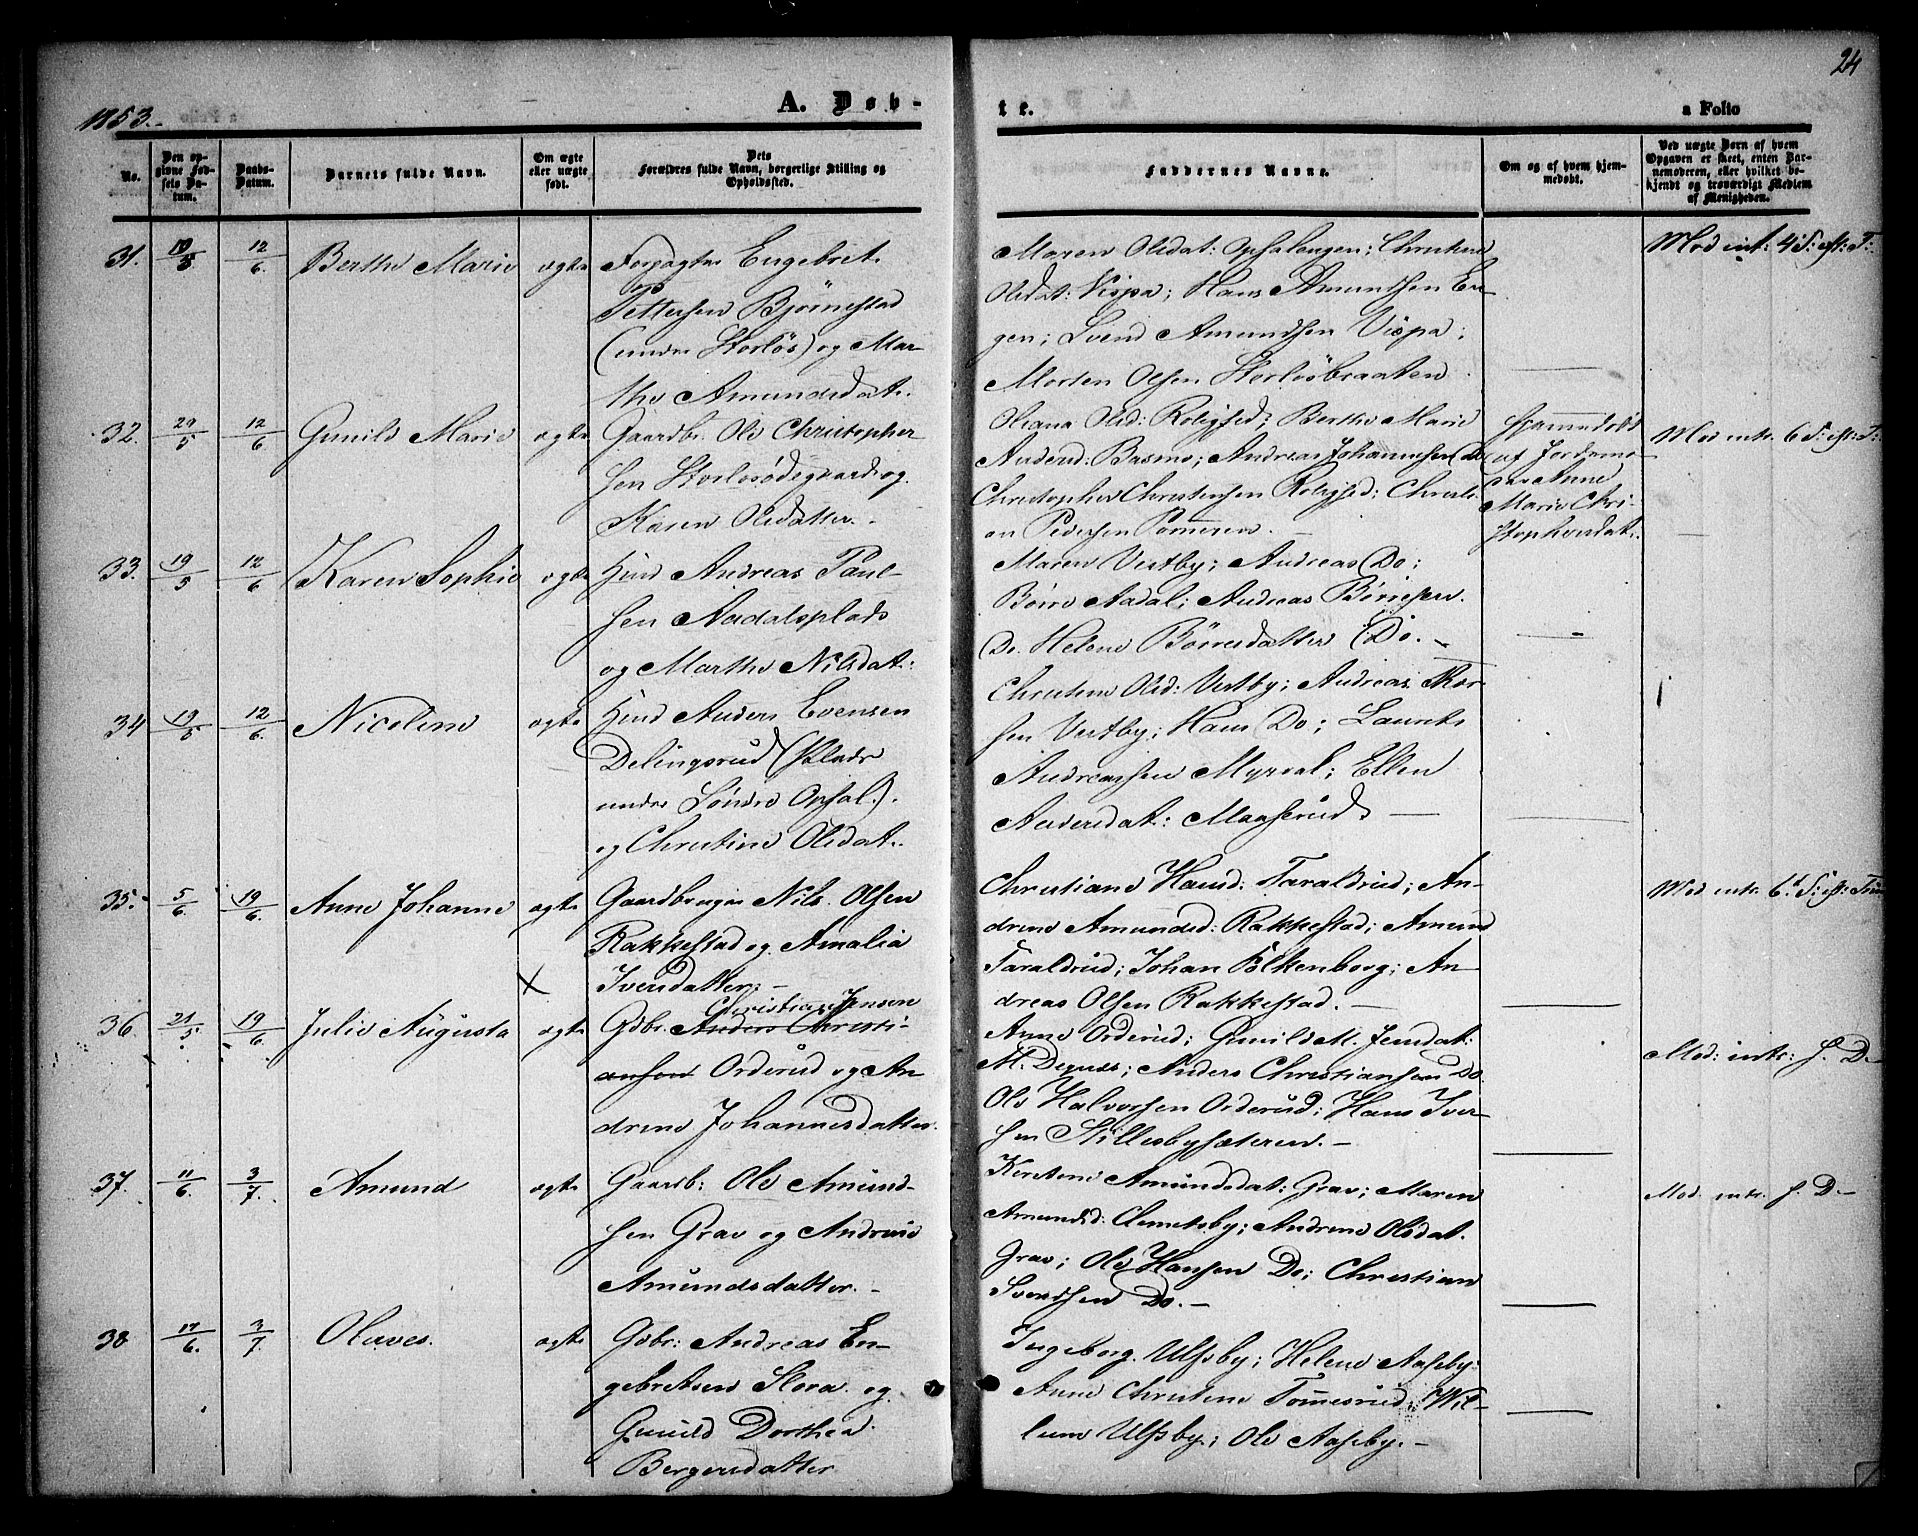 24
1853.
A. Døb-
te.
a Folio
No.
Den op-
givne Fød-
sels Da-
tum.
Daabs-
Datum.
Barnets fulde Navn.
Om ægte
eller uægte
født.
Dets
Forældres fulde Navn, borgerlige Stilling og
Opholdssted.
Faddernes Navne.
Om og af hvem hjem-
medøbt.
Ved uægte Børn af hvem
Opgaven er skeet, enten Bar-
nemoderen, eller hvilket be-
kjendt og troværdigt Medlem
af Menigheden.
31. 19/5 12/6. Berthe Marie ægte
Forpagter Engebret
Pettersen Bjørnestad
(under Storløs) og Mar-
the Amundsdat.
Maren Olsdat: Opsalengen; Christine
Olsdat: Vispa; Hans Amundsen En-
gen; Svend Amundsen Vispa;
Morten Olsen Storløsbraaten
Mod int: 4 S: eft: T:
32. 29/5 12/6 Gunild Marie ægte
Gaardbr. Ole Christopher-
sen Storløsødegaard og
Karen Olsdatter.
Oliana Olsd: Rolighed; Berthe Marie
Andersd: Basmo; Andreas Johannesen Do
Christopher Christensen Rolighed; Christi-
an Pedersen Pommeren.
Hjemmedøbt
af Jordemo-
er Anne
Marie Chri-
stophersdat.
Mod intr. 6 S: eft: T:
33. 19/5 12/6 Karen Sophie ægte
Huusmd Andreas Paul-
sen Aadalsplads
og Marthe Nilsdat:
Maren Vestby; Andreas Do;
Børre Aadal; Andreas Børresen
Do. Helene Børresdatter Do.
34 19/5 12/6. Nicoline ægte
Huusmd Anders Evensen
Delingsrud (Plads
under Søndre Opsal).
og Christine Olsdat.
Christine Olsd: Vestby; Andreas Thor-
sen Vestby; Hans Do; Laurits
Andreassen Myrvol; Ellen
Andersdat: Maaserud
35. 5/6. 19/6. Anne Johanne ægte
Gaardbruger Nils Olsen
Rakkestad og Amalia
Iversdatter.
Christiane Hansd: Taraldrud; An-
drine Amundsd: Rakkestad; Amund
Taraldrud; Johan Elkenborg; An-
dreas Olsen Rakkestad.
Mod intr. 6t S: eft: Trin
X
36. 21/5 19/6. Julie Augusta ægte
Christian Jensen
Gdbr. Anders Christi-
ansen Orderud og An-
drine Johannesdatter.
Anne Orderud; Gunild M. Jensdat:
M. Deguss; Anders Christiansen Do
Ole Halvorsen Orderud; Hans Iver-
sen Stillesbysæteren.
Mod: intr: s. D.
37. 11/6. 3/7. Amund ægte
Gaardb: Ole Amund-
sen Grav og Andrine
Amundsdatter.
Kirstine Amundsdat: Grav; Maren
Amundsd: Clemetsby; Andrine Olsdat.
Grav; Ole Hansen Do; Christian
Svendsen Do.
Mod. intr. s. D.
38 17/6. 3/7. Oluves. ægte
Gdbr: Andreas En-
gebretsen Slora og
Gunild Dorthea
Bergersdatter
Ingeborg Ulfsby; Helene Aaseby;
Anne Christine Tømmesrud; Wil-
lum Ulfsby; Ole Aaseby.